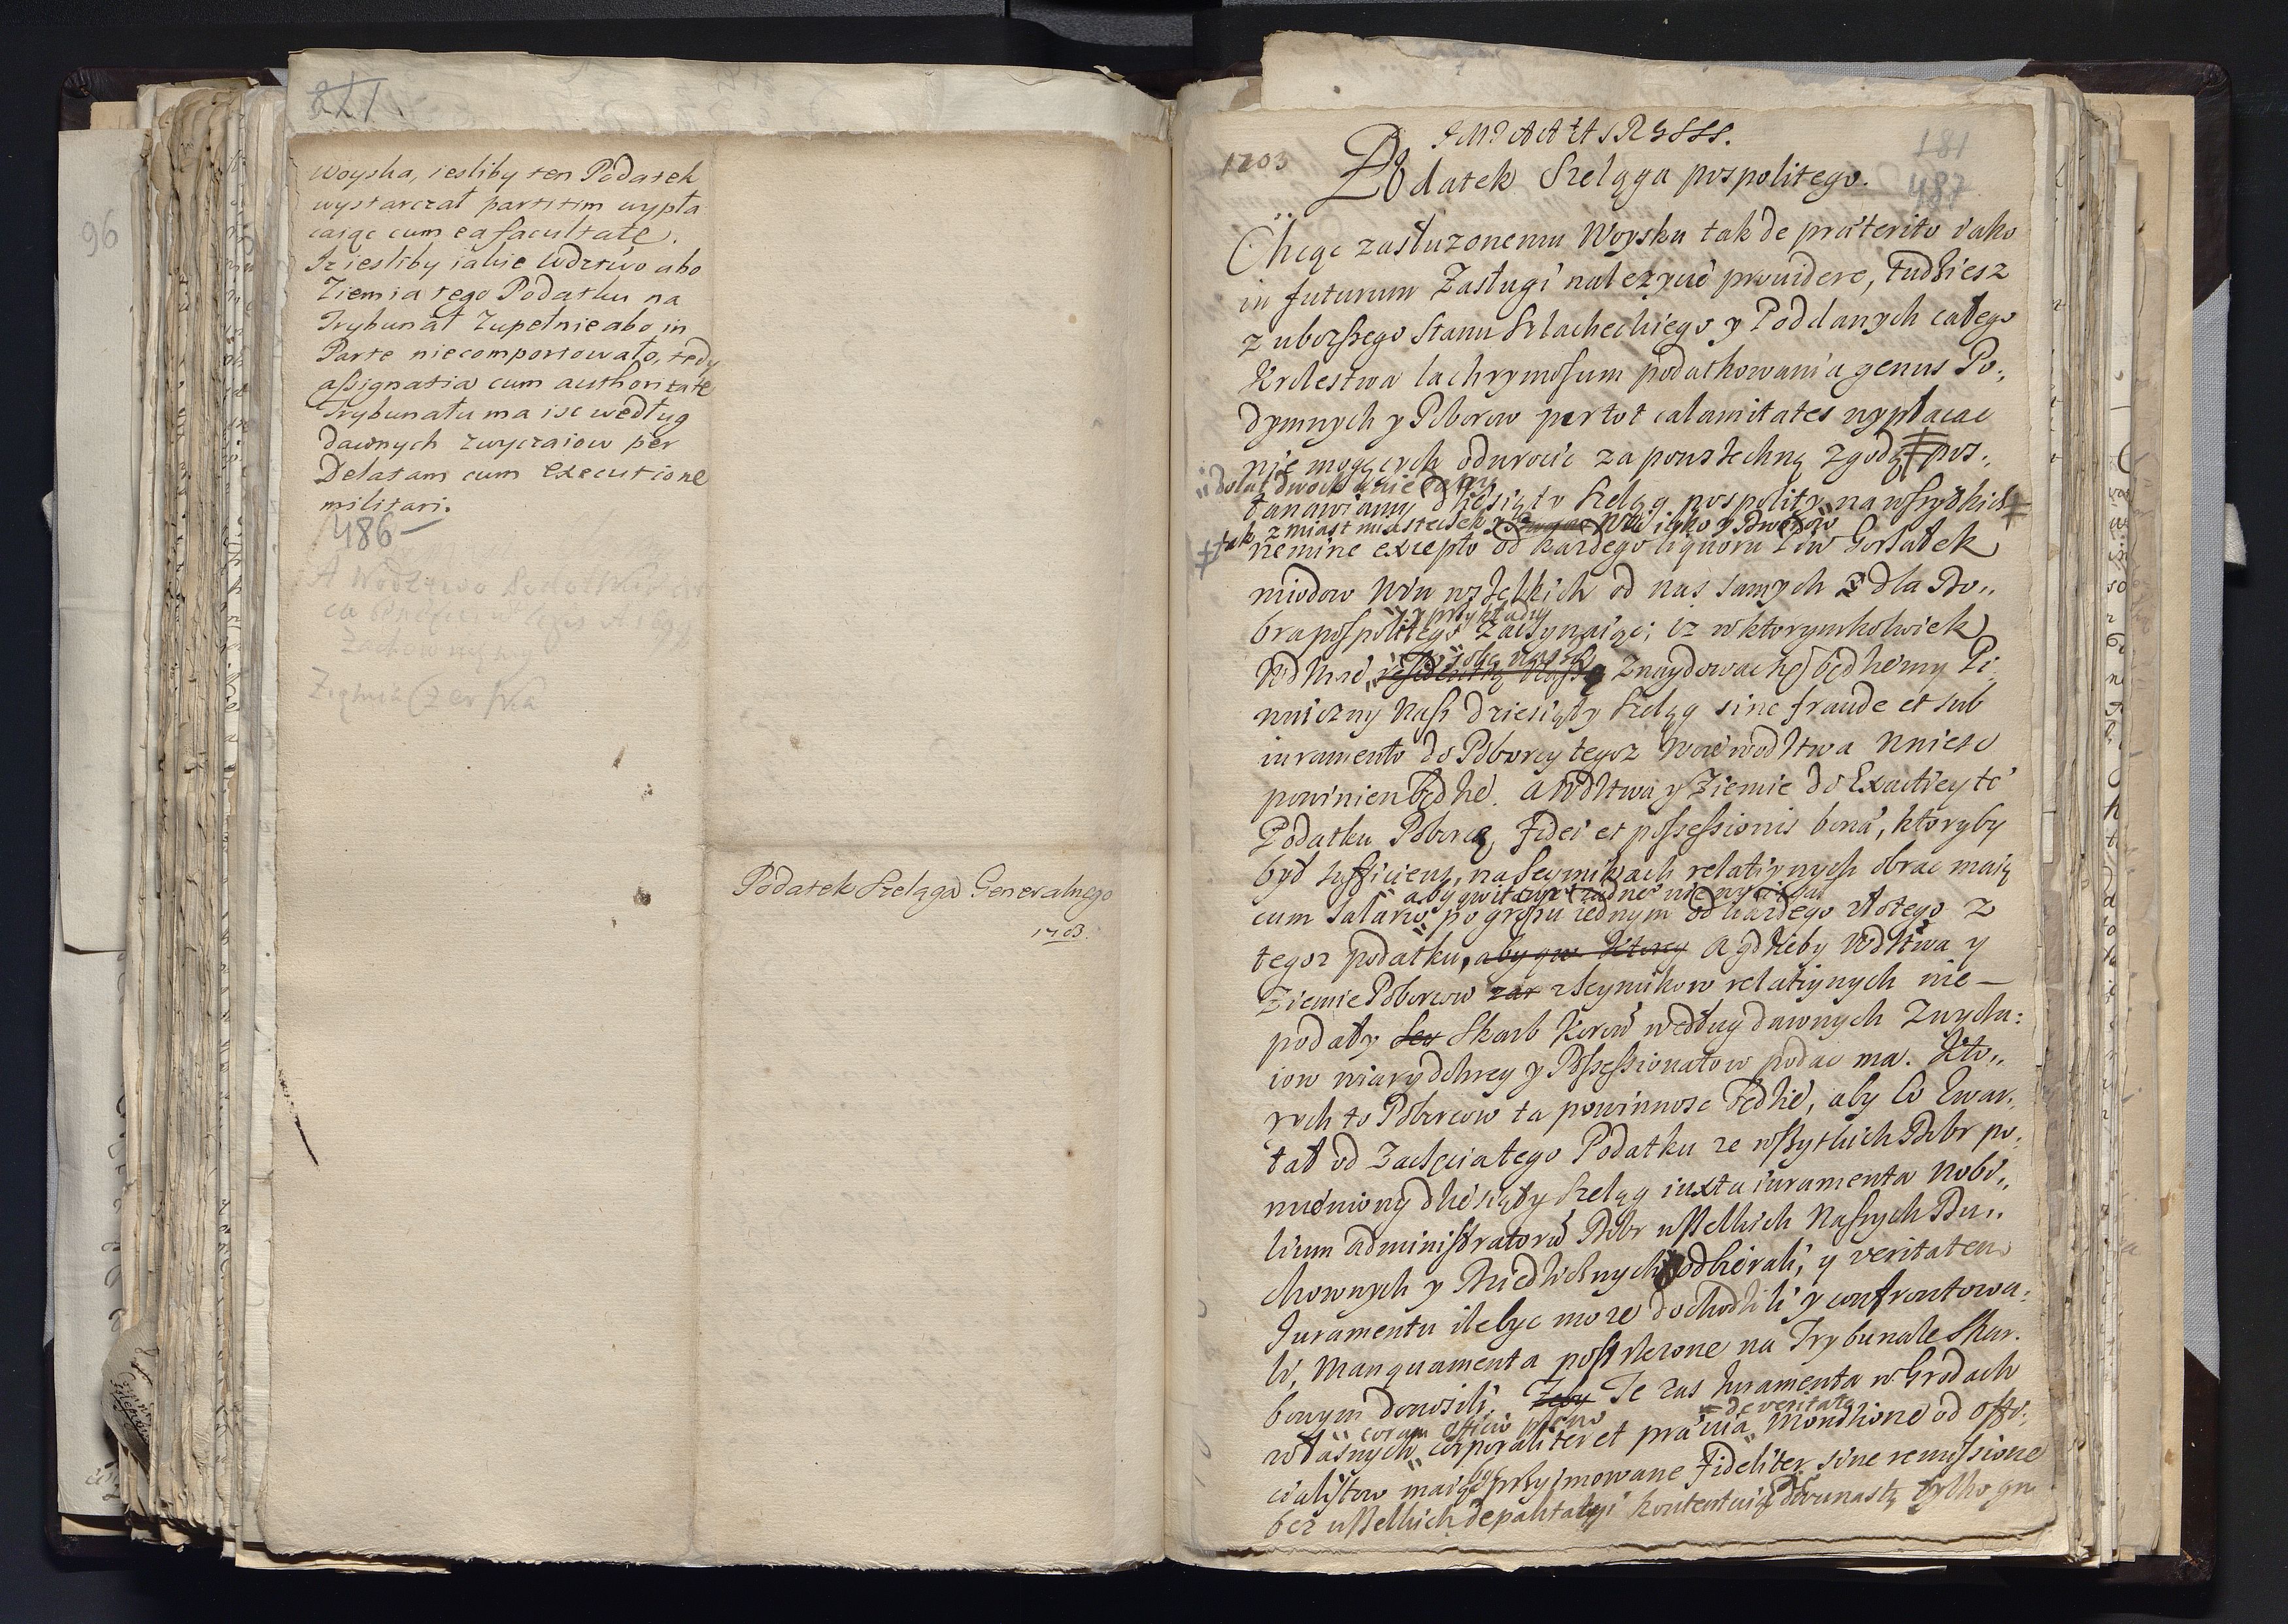 96
Woyska, iesliby ten Podatek
wystarczał partitim wypła
caiąc cum ea facultate.
Iz iesliby iakie Wdztwo abo
Ziemia tego Podatku na
Trybunał Zupełnie abo in
Parte niecomportowało, tedy
assignatia cum authoritate
Trybunału ma isc według
dawnych zwyczaiow per
Delatam cum executione
militari.
486
Podatek Szeląga Generalnego
1703.
1703
181
487
Podatek Szeląga pospolitego.
Chcąc zasłuzonemu Woysku tak de præterito iako
in futurum Zasługi nalezycie prouidere, tudziesz
z uboższego Stanu Szlacheckiego y Poddanych całego
Krolestwa lachrymosum podatkowania genus Po,,
dymnych y Poborow per tot calamitates wypłacac
nie mogących odwrocic za powszechną zgodą pos,,
do lat dwoch
tanawiamy dziesiąty Szeląg pospolity na wszystkich
tak z miast miasteczek
nemine excepto od kazdego liquoru Piw Gorzałek
miodow Win wszelkich od nas samych dla Do,,
bra pospolitego zaczynaiąc; iz w ktorymkolwiek
Wdztwie znaydowac się będziemy Pi
wniczny Nasz dziesiąty Szeląg sine fraude et sub
iuramento do Poborcy tegoz Woiewodztwa wniesc
powinien będzie. a Wdztwa y Ziemie do Exactiey te
Podatku Poborcę, Fidei et possessionis bona, ktoryby
był sufficiens, na Seymikach relatiynych obrac maią
cum Salario po groszu iednym od kazdego złotego z
tegoz podatku, a gdzieby Wdztwa y
Ziemie Poborcow z Seymikow relatiynych nie
podały Skarb Koron według dawnych Zwycza:
iow wiary dobrey y Possessionatow podac ma. Kto,,
rych to Poborcow ta powinnosc będzie, aby Co Kwar,
tał od Zaczęciatego Podatku ze wszytkich Dobr po,
mieniony dziesiąty Szeląg iuxta iuramenta Nobi,,
lium administratorum Dobr wszelkich Naszych Du,,
chownych y Dziedzicznych odbierali, y veritatem
Juramentu ile byc moze dochodzili y confrontowa:
li, Manquamenta postrzezone na Trybunale Skar.
bowym donosili. Te zas Juramenta w Grodach
coram officio pleno
de veritate
własnych corporaliter et prævia Mondzione od Offi,
cialistow maią bydz przyimowane Fideliter sine remissione
bez wszelkich depaktatyi kontentuiąc